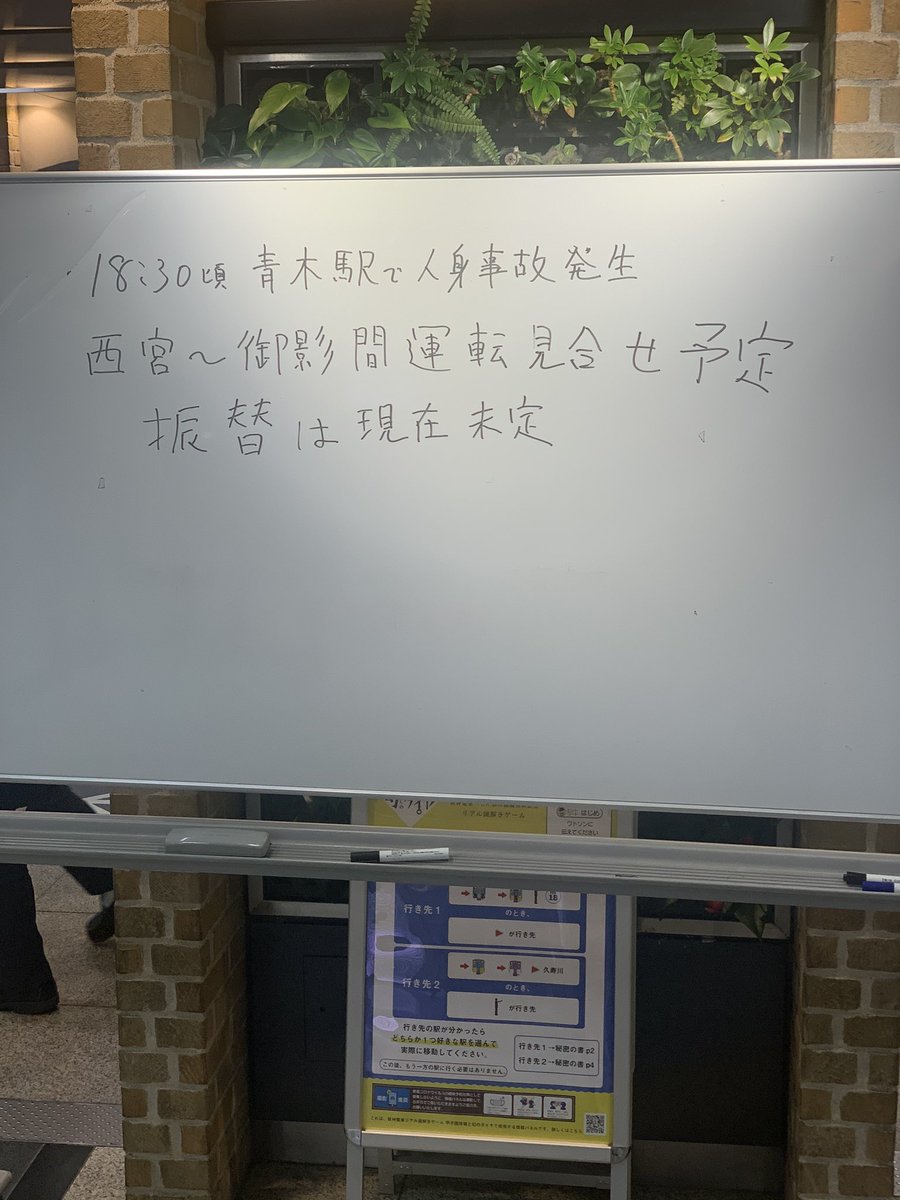 18:30頃 青木駅で人身事故発生
西宮～御影間運転見合せ予定
振替は現在未定
リアル謎解きゲーム
はじめ
ワトソンに
伝えてください
行き先1
のとき、
が行き先
行き先2
久寿川
のとき、
が行き先
行き先の駅が分かったら
どちらか1つ好きな駅を選んで
実際に移動してください。
この後、もう一方の駅に行く必要はありません。
行き先1→秘密の書p2
行き先2→秘密の書p4